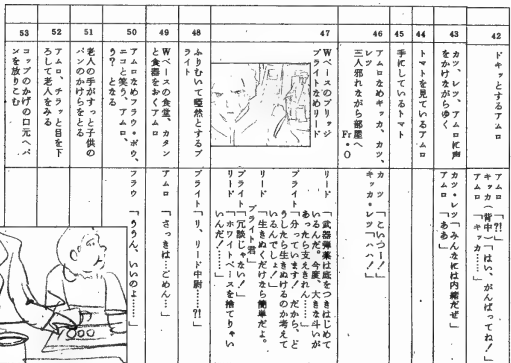 42
ドキッとするアムロ
アムロ「?!」
キッカ(背中)「はい、がんばってね!」
アムロ「キッカ……」
43
カツ、レツ、アムロに声
をかけながらゆく
カツ・レツ「みんなには内緒だぜ」
アムロ「ああ」
44
トマトを見ているアムロ
45
手にしているトマト
46
アムロなめキッカ、カツ、
レツ
三人邪れながら部屋へ
Fr・O
カツ「こいつー!」
キッカ・レツ「ハハ!」
47
Wベースのブリッジ
ブライトなめリード
リード「武器弾薬は底をつきはじめて
いるんだ。今度、大きな斗いが
あったら支えきれん……」
ブライト「分っています!だから、ど
うしたら生きぬけるのか考えて
いるんでしょ!」
リード「生きぬくだけなら簡単だよ。
ブライト君」
ブライト「冗談じゃない!」
リード「ホワイトベースを捨てりゃい
いんだ!……」
48
ふりむいて唖然とするブ
ライト
ブライト「リ、リード中尉……?!」
49
Wベースの食堂、カタン
と食器をおくアムロ
アムロ「さっきは…ごめん…」
50
アムロなめフラウ・ボウ、
ニコと笑う、アムロ、
う?となる
フラウ「ううん、いいのよ……」
51
老人の手がすっと子供の
パンのかけらをとる
52
アムロ、チラッと目を下
ろして老人をみる
53
コップのかげの口元へパ
ンを放りこむ